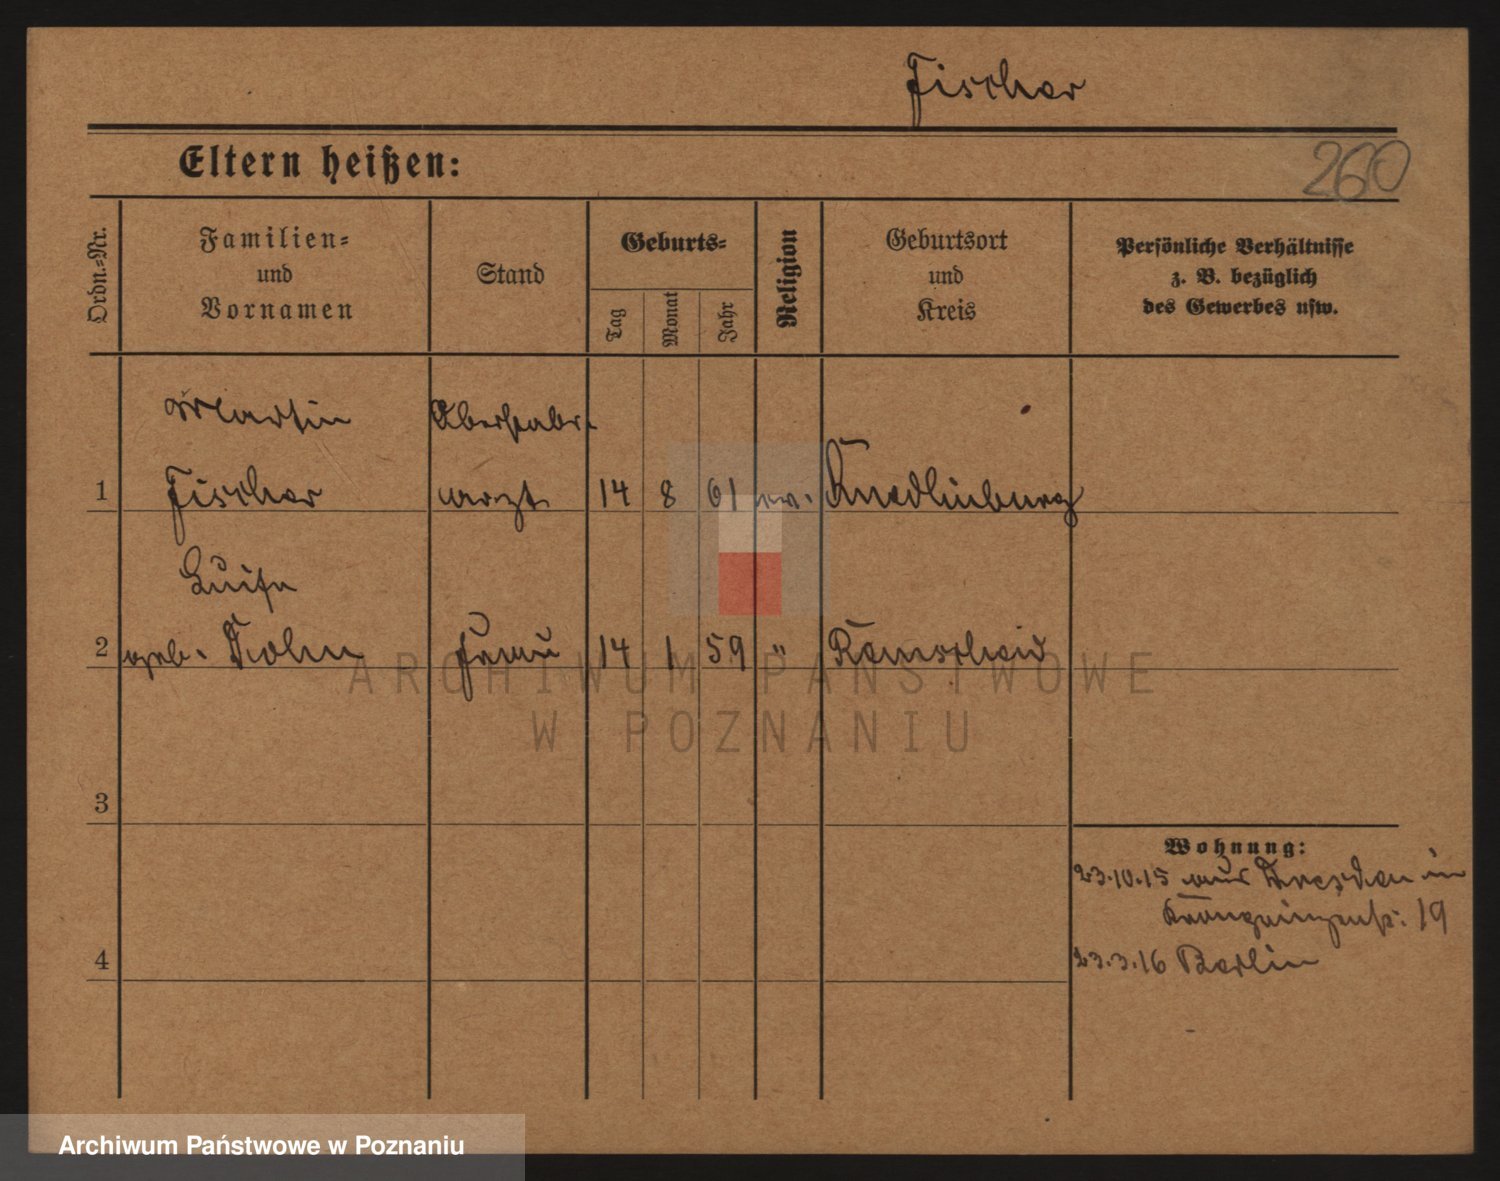 Fischer
Eltern heißen:
260
Ordn.-Nr.
Familien-
und
Vornamen
Stand
Geburts-
Tag
Monat
Jahr
Religion
Geburtsort
und
Kreis
Persönliche Verhältnisse
z. B. bezüglich
des Gewerbes usw.
Martin Oberstabs-
1 Fischer arzt 14 8 61 ev. Quedlinburg
Luise
2 geb. Frau 14 1 59 " Remscheid
3
Wohnung:
23.10.15 aus Dresden in
Kronprinzenstr. 19
4
23.3.16 Berlin
ARCHIWUM PAŃSTWOWE
W POZNANIU
Archiwum Państwowe w Poznaniu